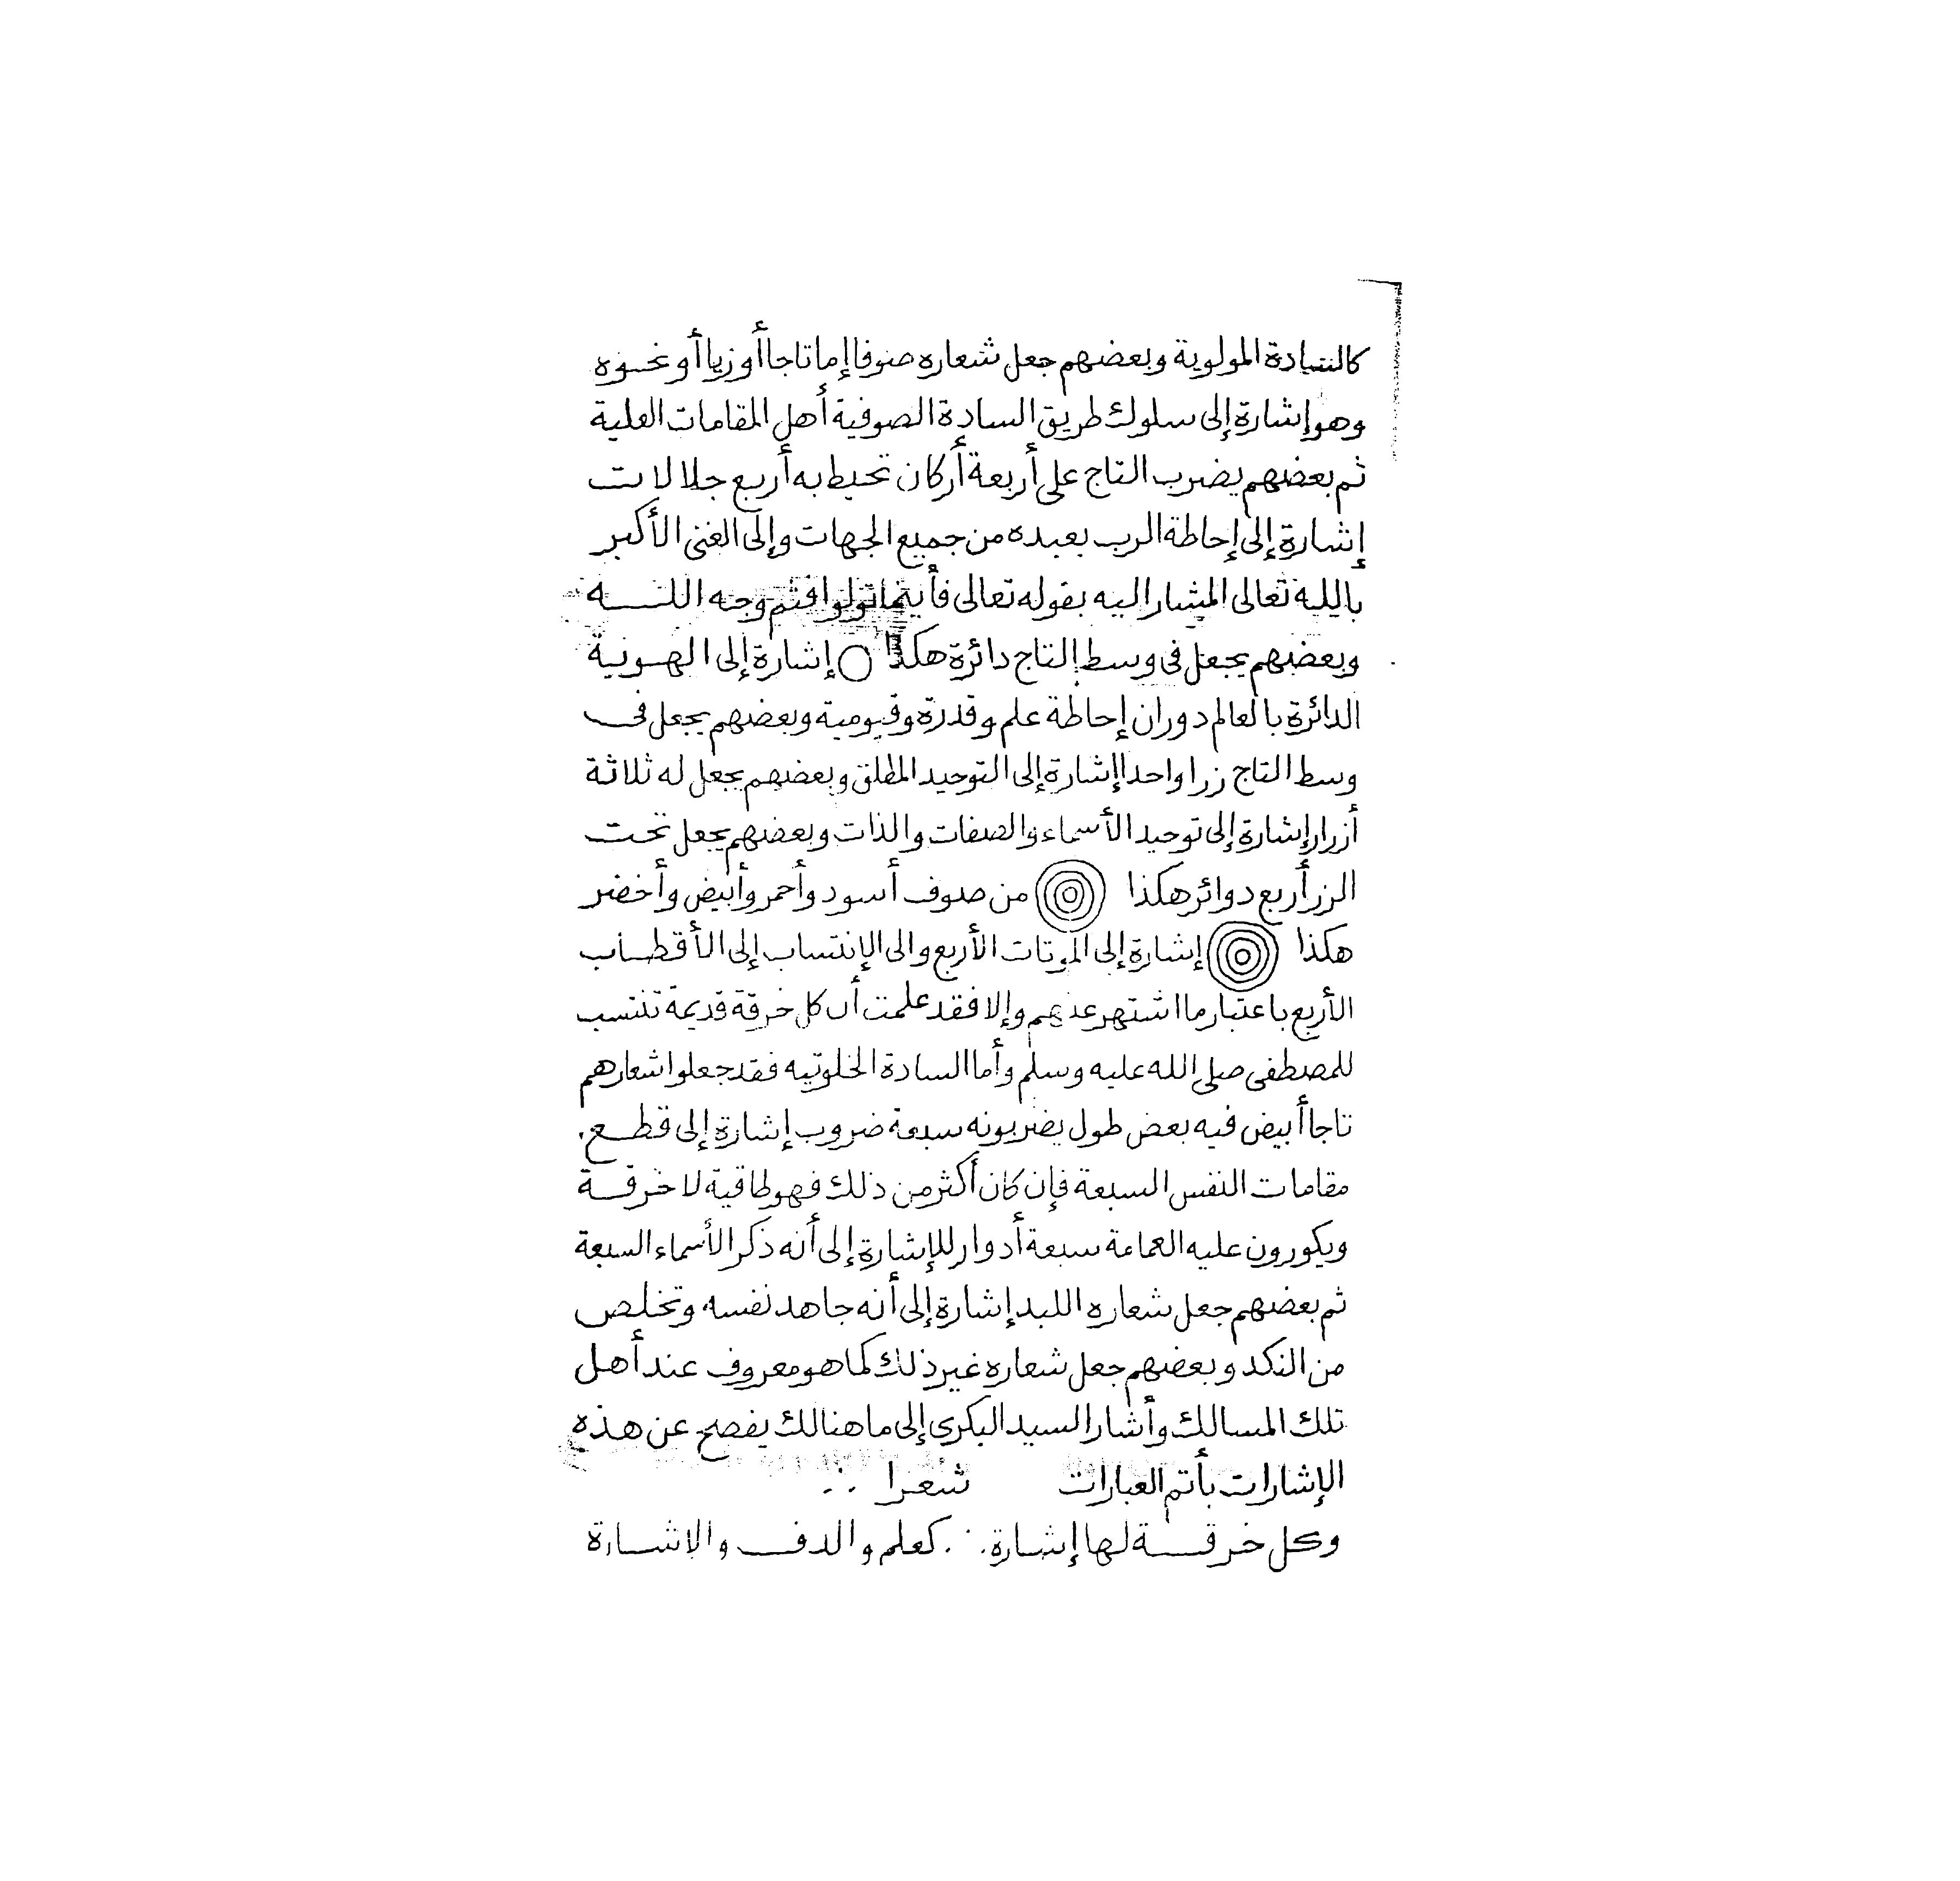 كالسادة المولوية وبعضهم جعل شعاره صوفا إما تاجا أو زيا أو نحوه
وهو إشارة إلى سلوك طريق السادة الصوفية أهل المقامات العلية
ثم بعضهم يضرب التاج على أربعة أركان تحيط به أربع جلالات
إشارة إلى إحاطة الرب بعبده من جميع الجهات وإلى الغنى الأكبر
بالله تعالى المشار اليه بقوله تعالى فأينما تولوا فثم وجه اللـــه
وبعضهم يجعل فى وسط التاج دائرة هكذا ○ إشارة إلى الهوية
الدائرة بالعالم دوران إحاطة علم وقدرة وقيومية وبعضهم يجعل فى
وسط التاج زرا واحدا إشارة إلى التوحيد المطلق وبعضهم يجعل له ثلاثة
أزرار إشارة إلى توحيد الأسماء والصفات والذات وبعضهم يجعل تحت
الزر أربع دوائر هكذا من صوف أسود وأحمر وأبيض وأخضر
هكذا إشارة إلى الموتات الأربع والى الإنتساب إلى الأقطاب
الأربع باعتبار ما اشتهر عنهم وإلا فقد علمت أن كل خرقة قديمة تنتسب
للمصطفى صلى الله عليه وسلم وأما السادة الخلوتيه فقد جعلوا شعارهم
تاجا أبيض فيه بعض طول يضربونه سبعة ضروب إشارة إلى قطع
مقامات النفس السبعة فإن كان أكثر من ذلك فهو طاقية لا خرقة
ويكورون عليه العمامة سبعة أدوار للإشارة إلى أنه ذكر الأسماء السبعة
ثم بعضهم جعل شعاره اللبد إشارة إلى أنه جاهد نفسه وتخلص
من النكد وبعضهم جعل شعاره غير ذلك كما هو معروف عند أهل
تلك المسالك وأشار السيد البكرى إلى ما هنالك يفصح عن هذه
الإشارات بأتم العبارات شعرا
وكل خرقــة لها إشارة ∴ كعلم والدف والاشارة